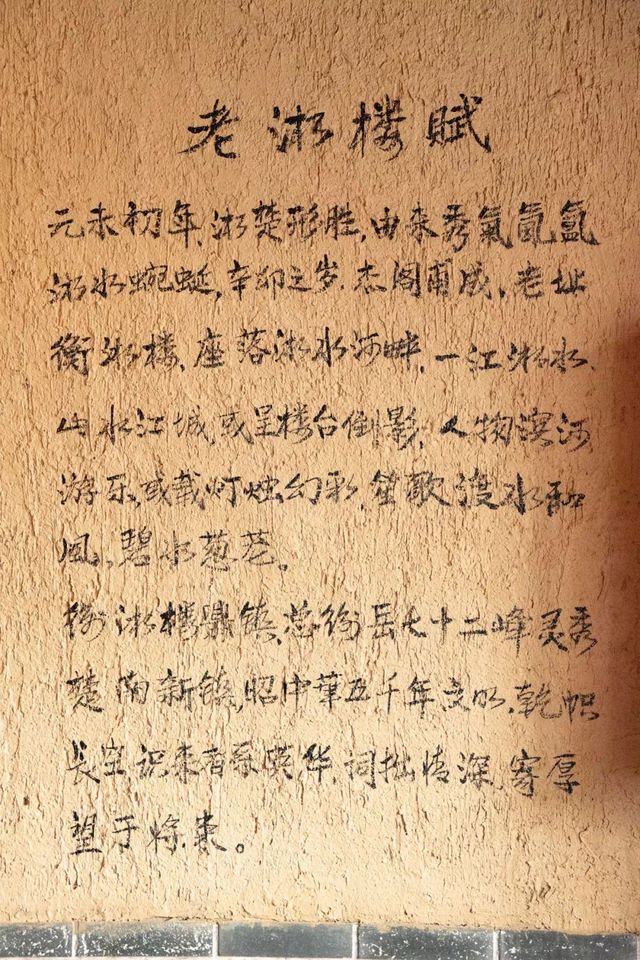 老淅楼赋
元末初年,淅楚形胜,由来秀氣氤氲
淅水蜿蜒,辛卯之岁.杰阁甫成,老址
衡淅楼,座落淅水河畔,一江淅水、
山水江城,或呈楼台倒影,人物滨河
游乐,或载灯烛幻彩,笙歌渡水和
风,碧水葱茫。
衡淅楼鼎镇,总衡岳七十二峰灵秀
楚南新镇,昭中華五千年文明,乾帜
长空识来者 英华,词拙情深,寄厚
望于将来。